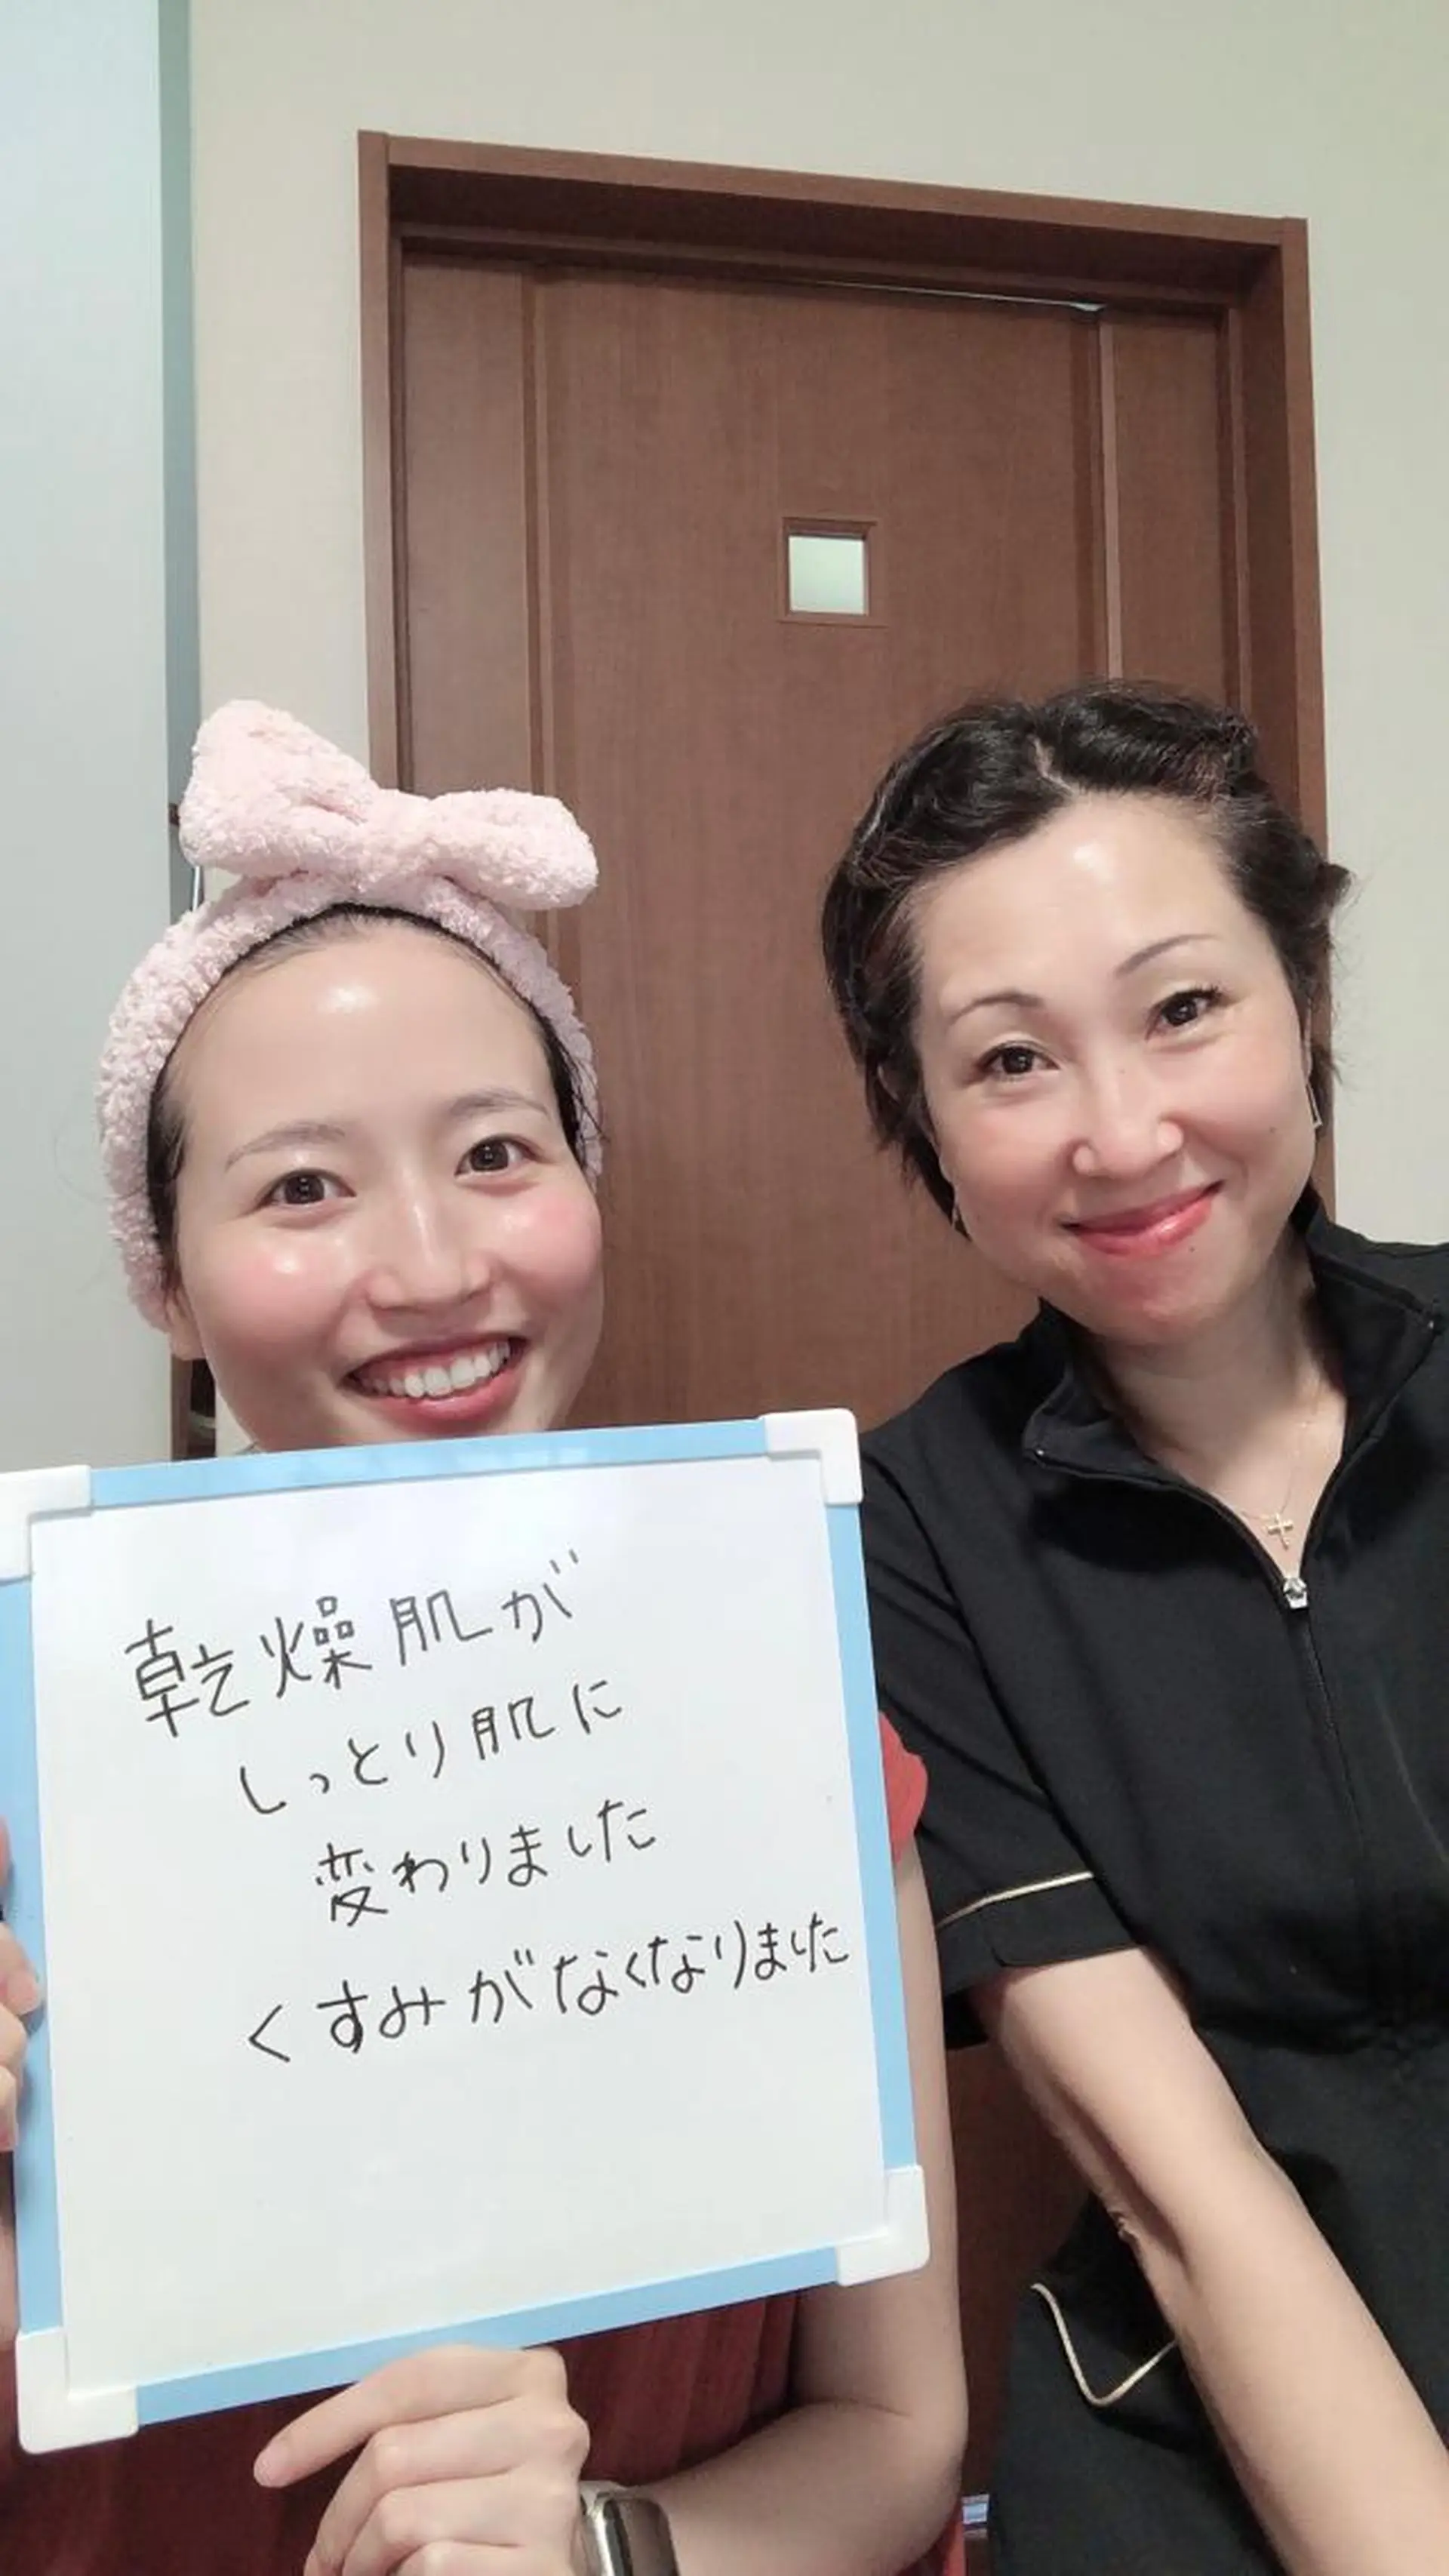 乾燥肌が
しっとり肌に
変わりました
くすみがなくなりました